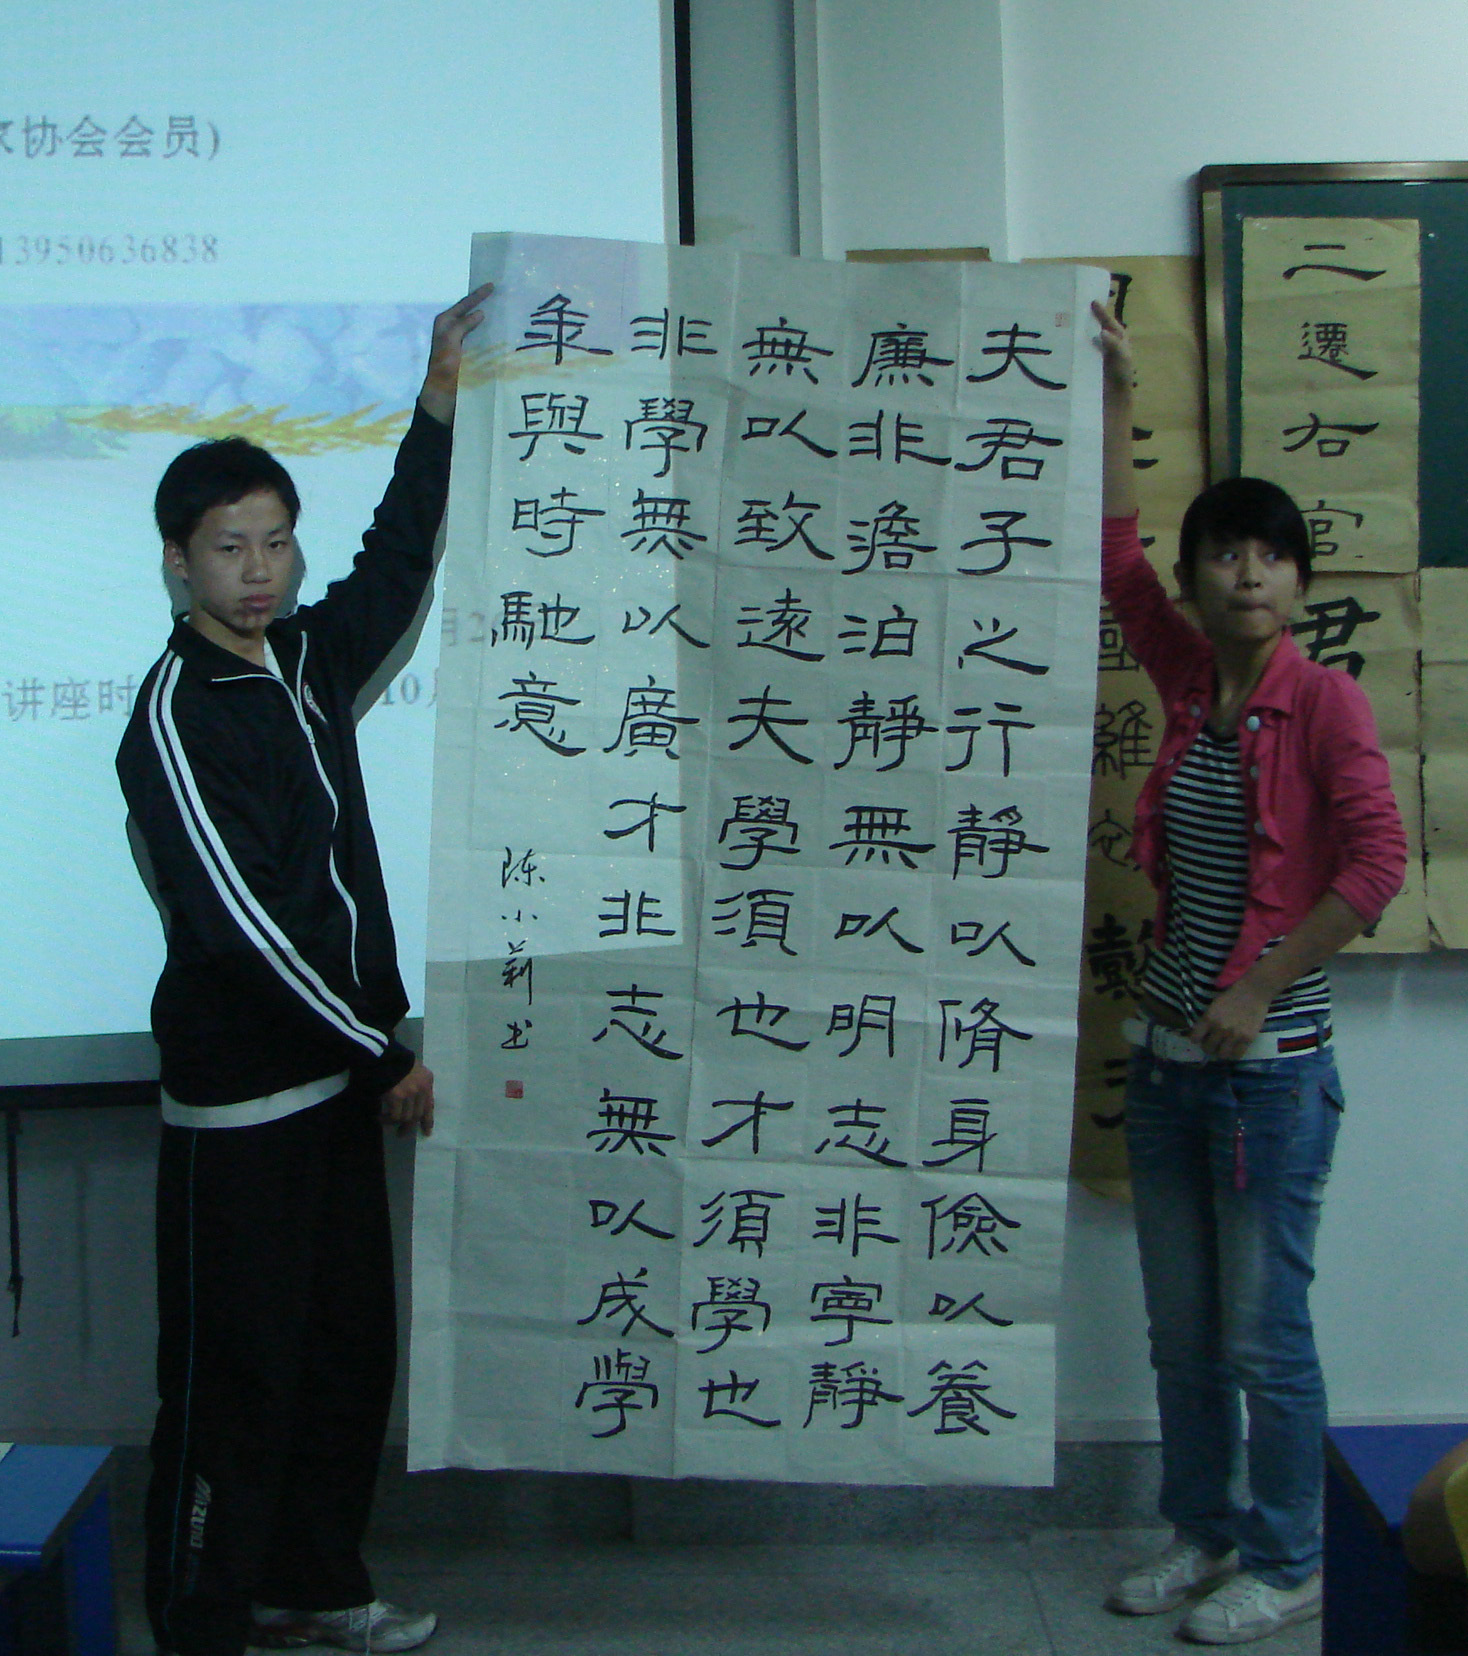 家协会会员)
13950636838
讲座时
10月
夫君子之行靜以脩身儉以養
廉非澹泊靜無以明志非寧靜
無以致遠夫學須也才須學也
非學無以廣才非志無以成學
年與時馳意
陈小莉书
二遷右官
君
MIZUNO